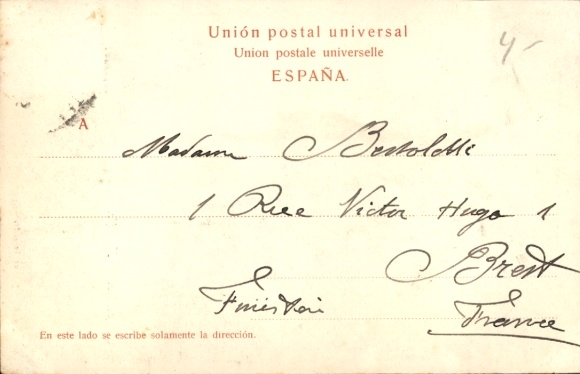 Unión postal universal
Union postale universelle
ESPAÑA.
4-
A
Madame Bertoletti
1 Rue Victor Hugo 1
Brest
Finistère
France
En este lado se escribe solamente la dirección.